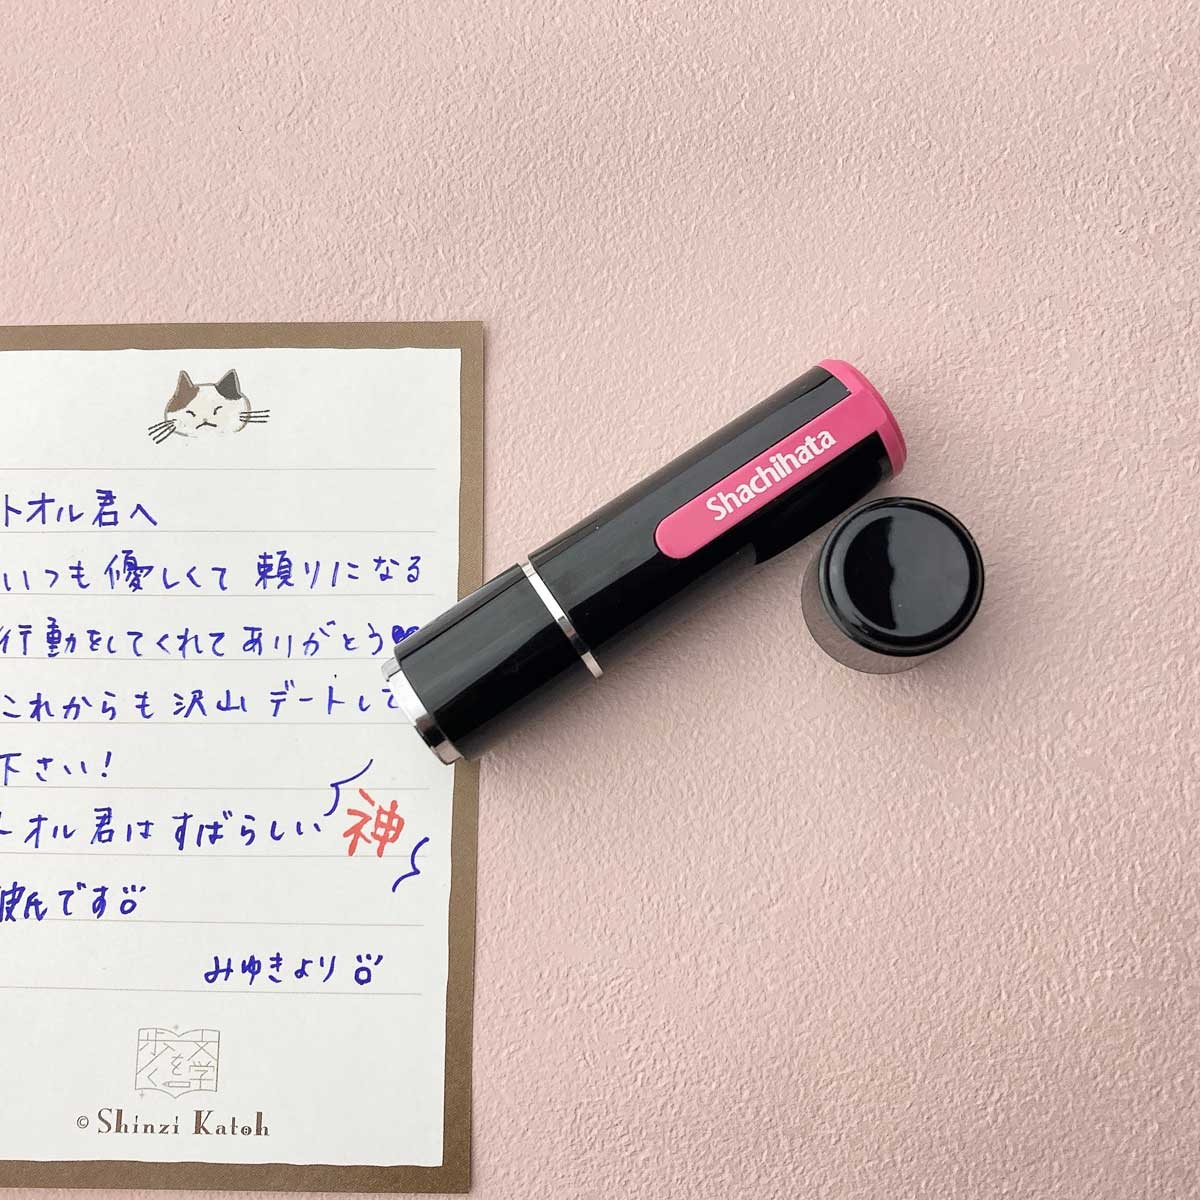 トオル君へ
いつも優しくて頼りになる
行動をしてくれてありがとう
これからも沢山デートして
下さい!
トオル君はすばらしい神
彼氏です
みゆきより
文学
を
歩く
© Shinzi Katoh
Shachihata